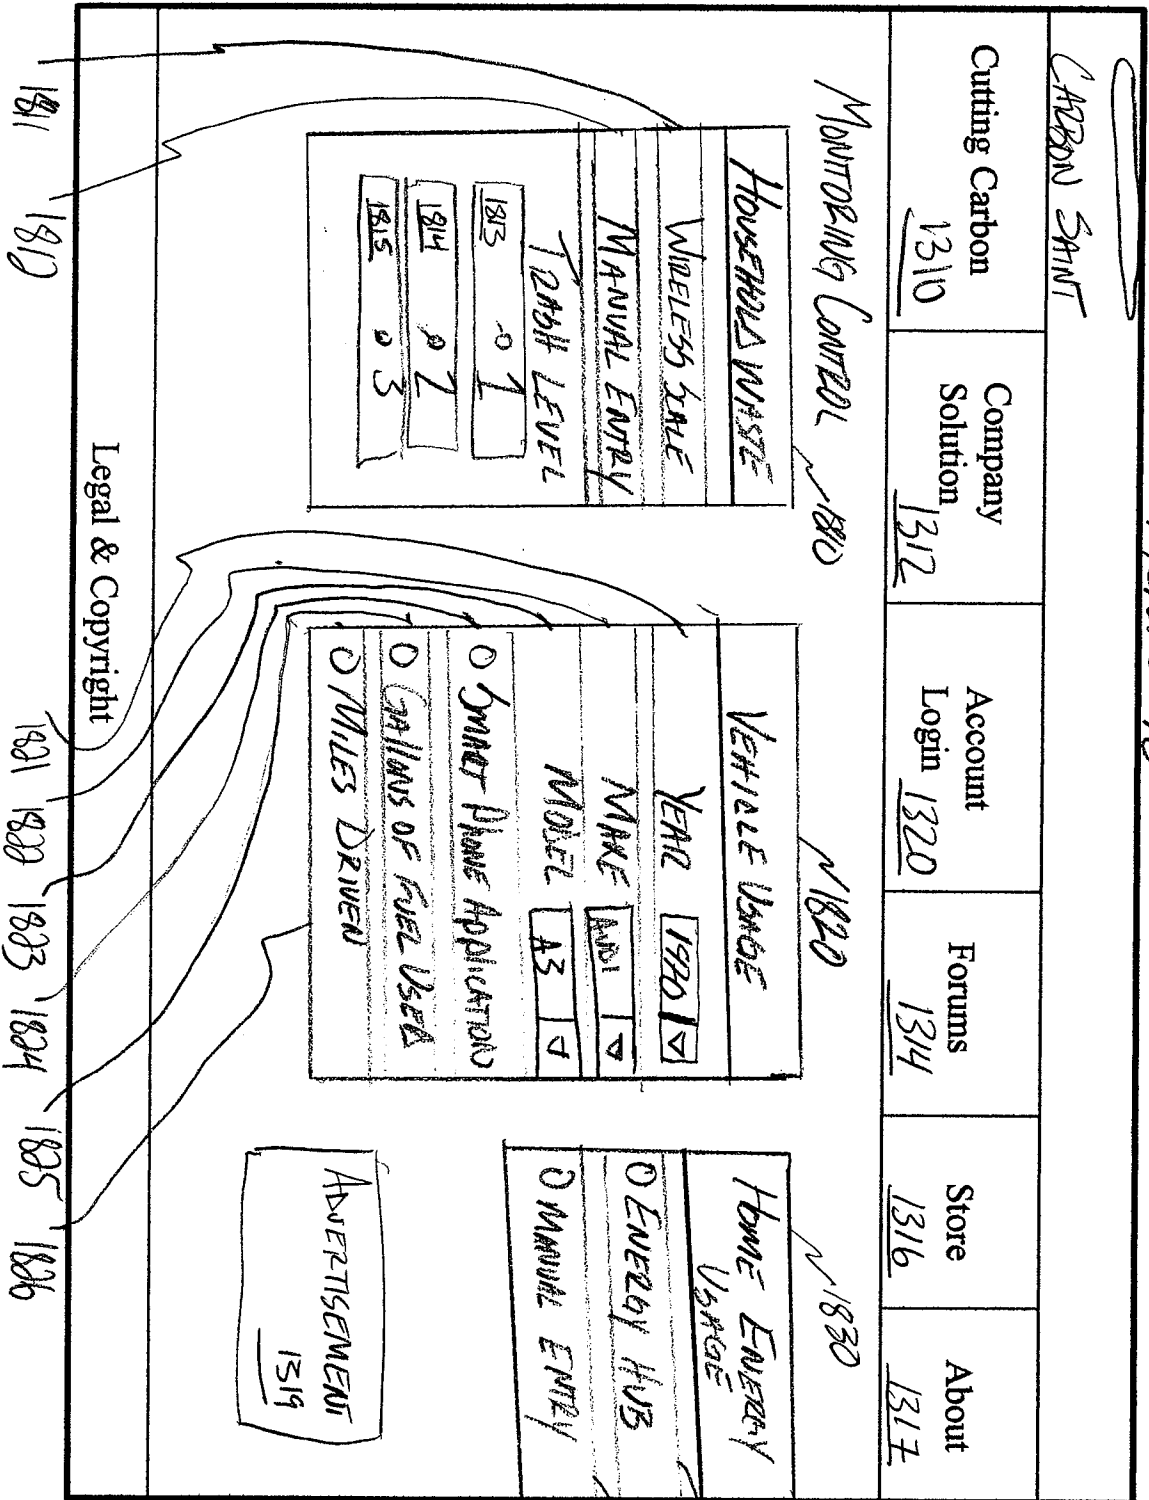 CARBON SAINT
Cutting Carbon 1310
Company Solution 1312
Account Login 1320
Forums 1314
Store 1316
About 1317
MONITORING CONTROL
1810
HOUSEHOLD WASTE
WIRELESS SCALE
MANUAL ENTRY
TRASH LEVEL
1813 1
1814 2
1815 3
1820
VEHICLE USAGE
YEAR 1990
MAKE AUDI
MODEL A3
SMART PHONE APPLICATION
GALLONS OF FUEL USED
MILES DRIVEN
1830
HOME ENERGY
USAGE
ENERGY HUB
MANUAL ENTRY
ADVERTISEMENT
1319
Legal & Copyright
1811 1812 1821 1822 1823 1824 1825 1826